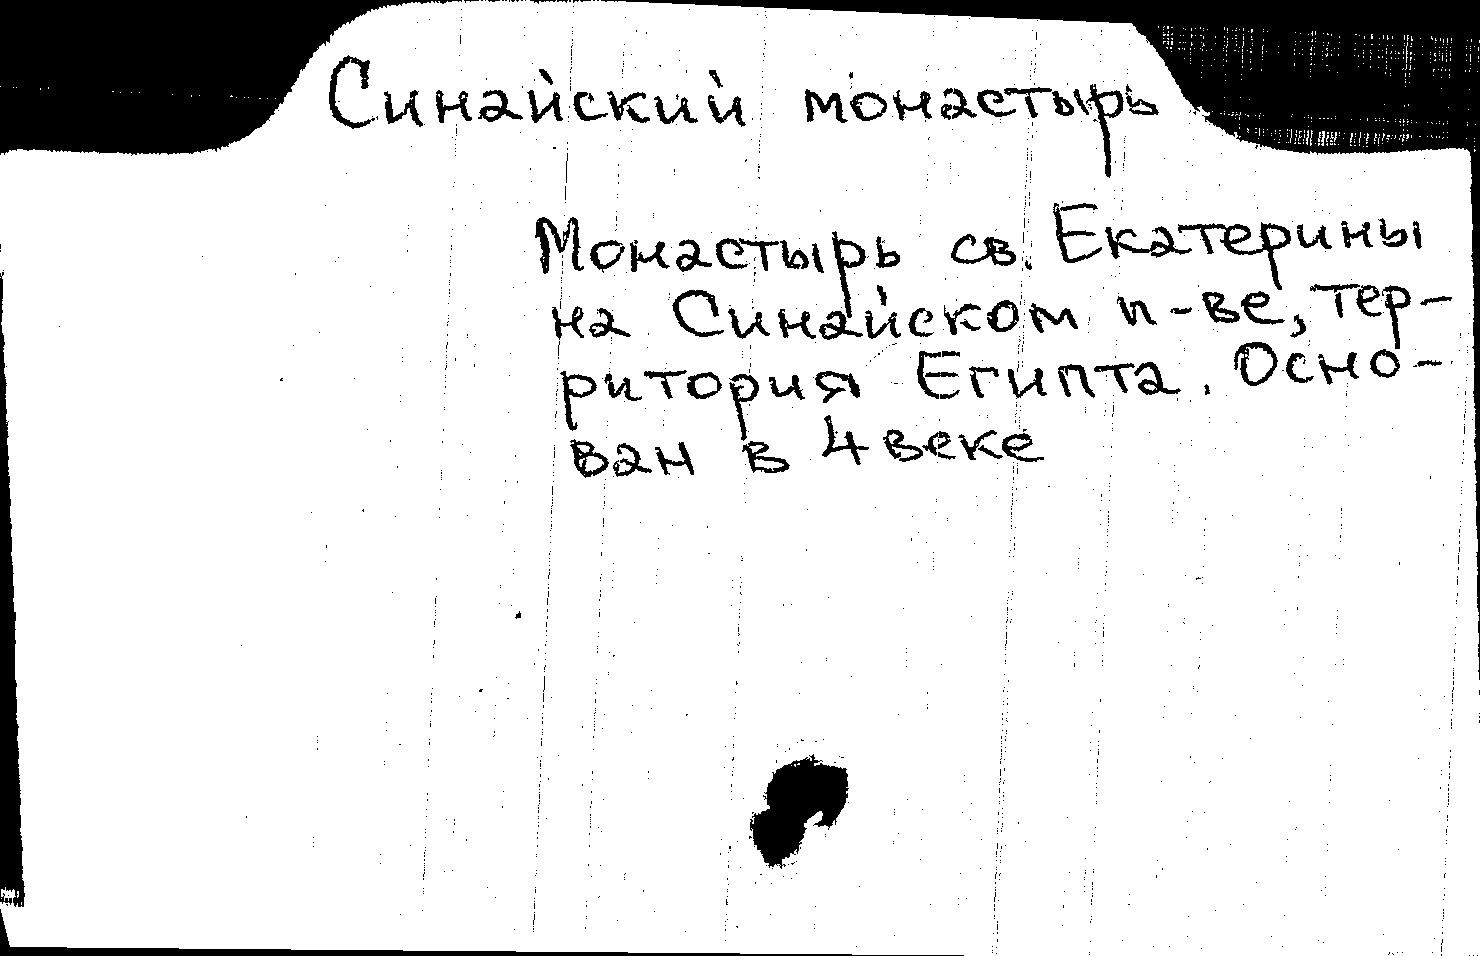 Синайский монастырь
Монастырь св. Екатерины
на Синайском п-ве, тер-
ритория Египта. Осно-
ван в 4 веке